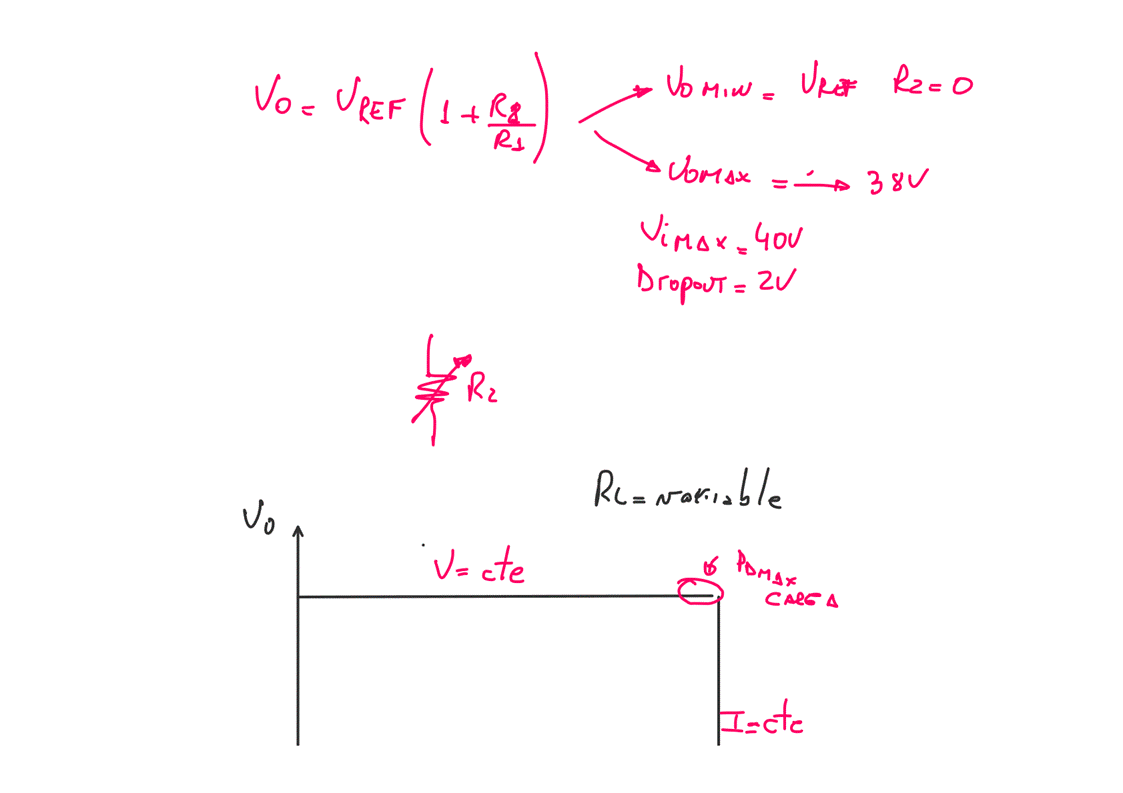 Vo = VREF (1 + R2/R1)
VOMIN = VREF R2=0
VOMAX = → 38V
ViMAX = 40V
Dropout = 2V
R2
RL = variable
Vo
V = cte
PDMAX
CARGA
I = cte